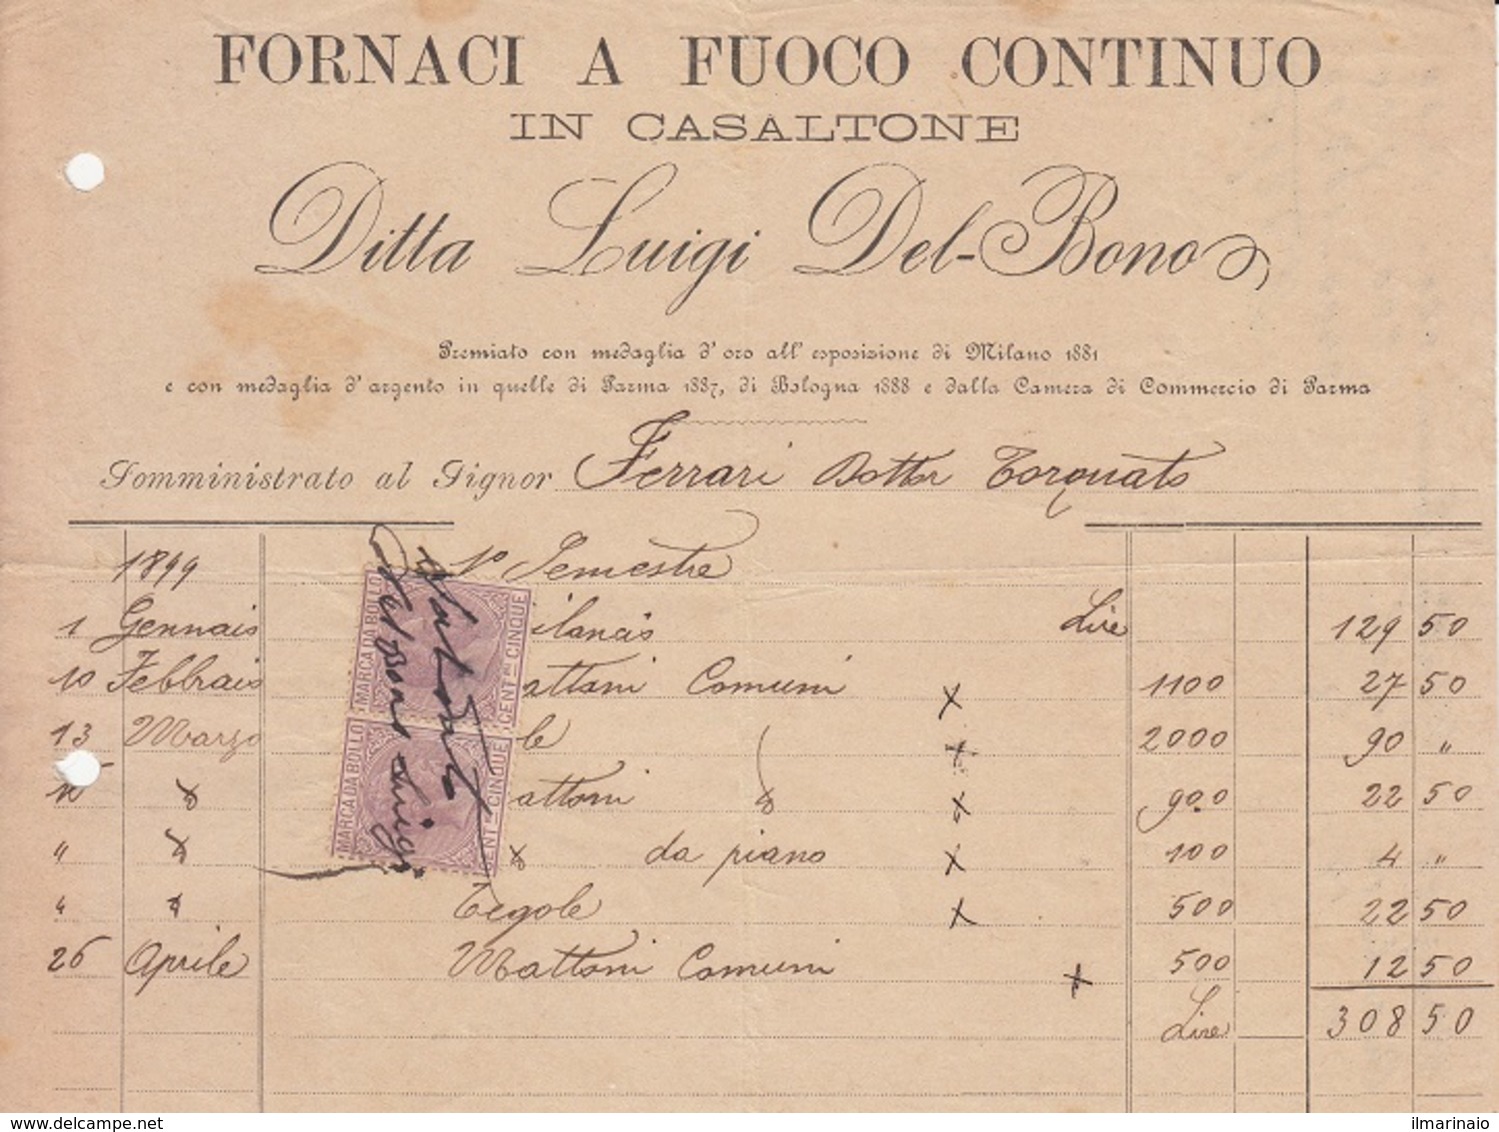 FORNACI A FUOCO CONTINUO
IN CASALTONE
Ditta Luigi Del-Bono
Premiato con medaglia d'oro all'esposizione di Milano 1881
e con medaglia d'argento in quelle di Parma 1887, di Bologna 1888 e dalla Camera di Commercio di Parma
Somministrato al Signor Ferrari Dottor Torquato
1899 1° Semestre
1 Gennaio ilancio Lire 129 50
10 Febbraio attoni Comuni 1100 27 50
13 Marzo le 2000 90 "
attoni 900 22 50
" da piano 100 4 "
" " Tegole 500 22 50
26 Aprile Mattoni Comuni 500 12 50
Lire 308 50
MARCA DA BOLLO CENT.MI CINQUE
MARCA DA BOLLO CENT.MI CINQUE
Del Bono Luigi
www.delcampe.net
ilmarinaio